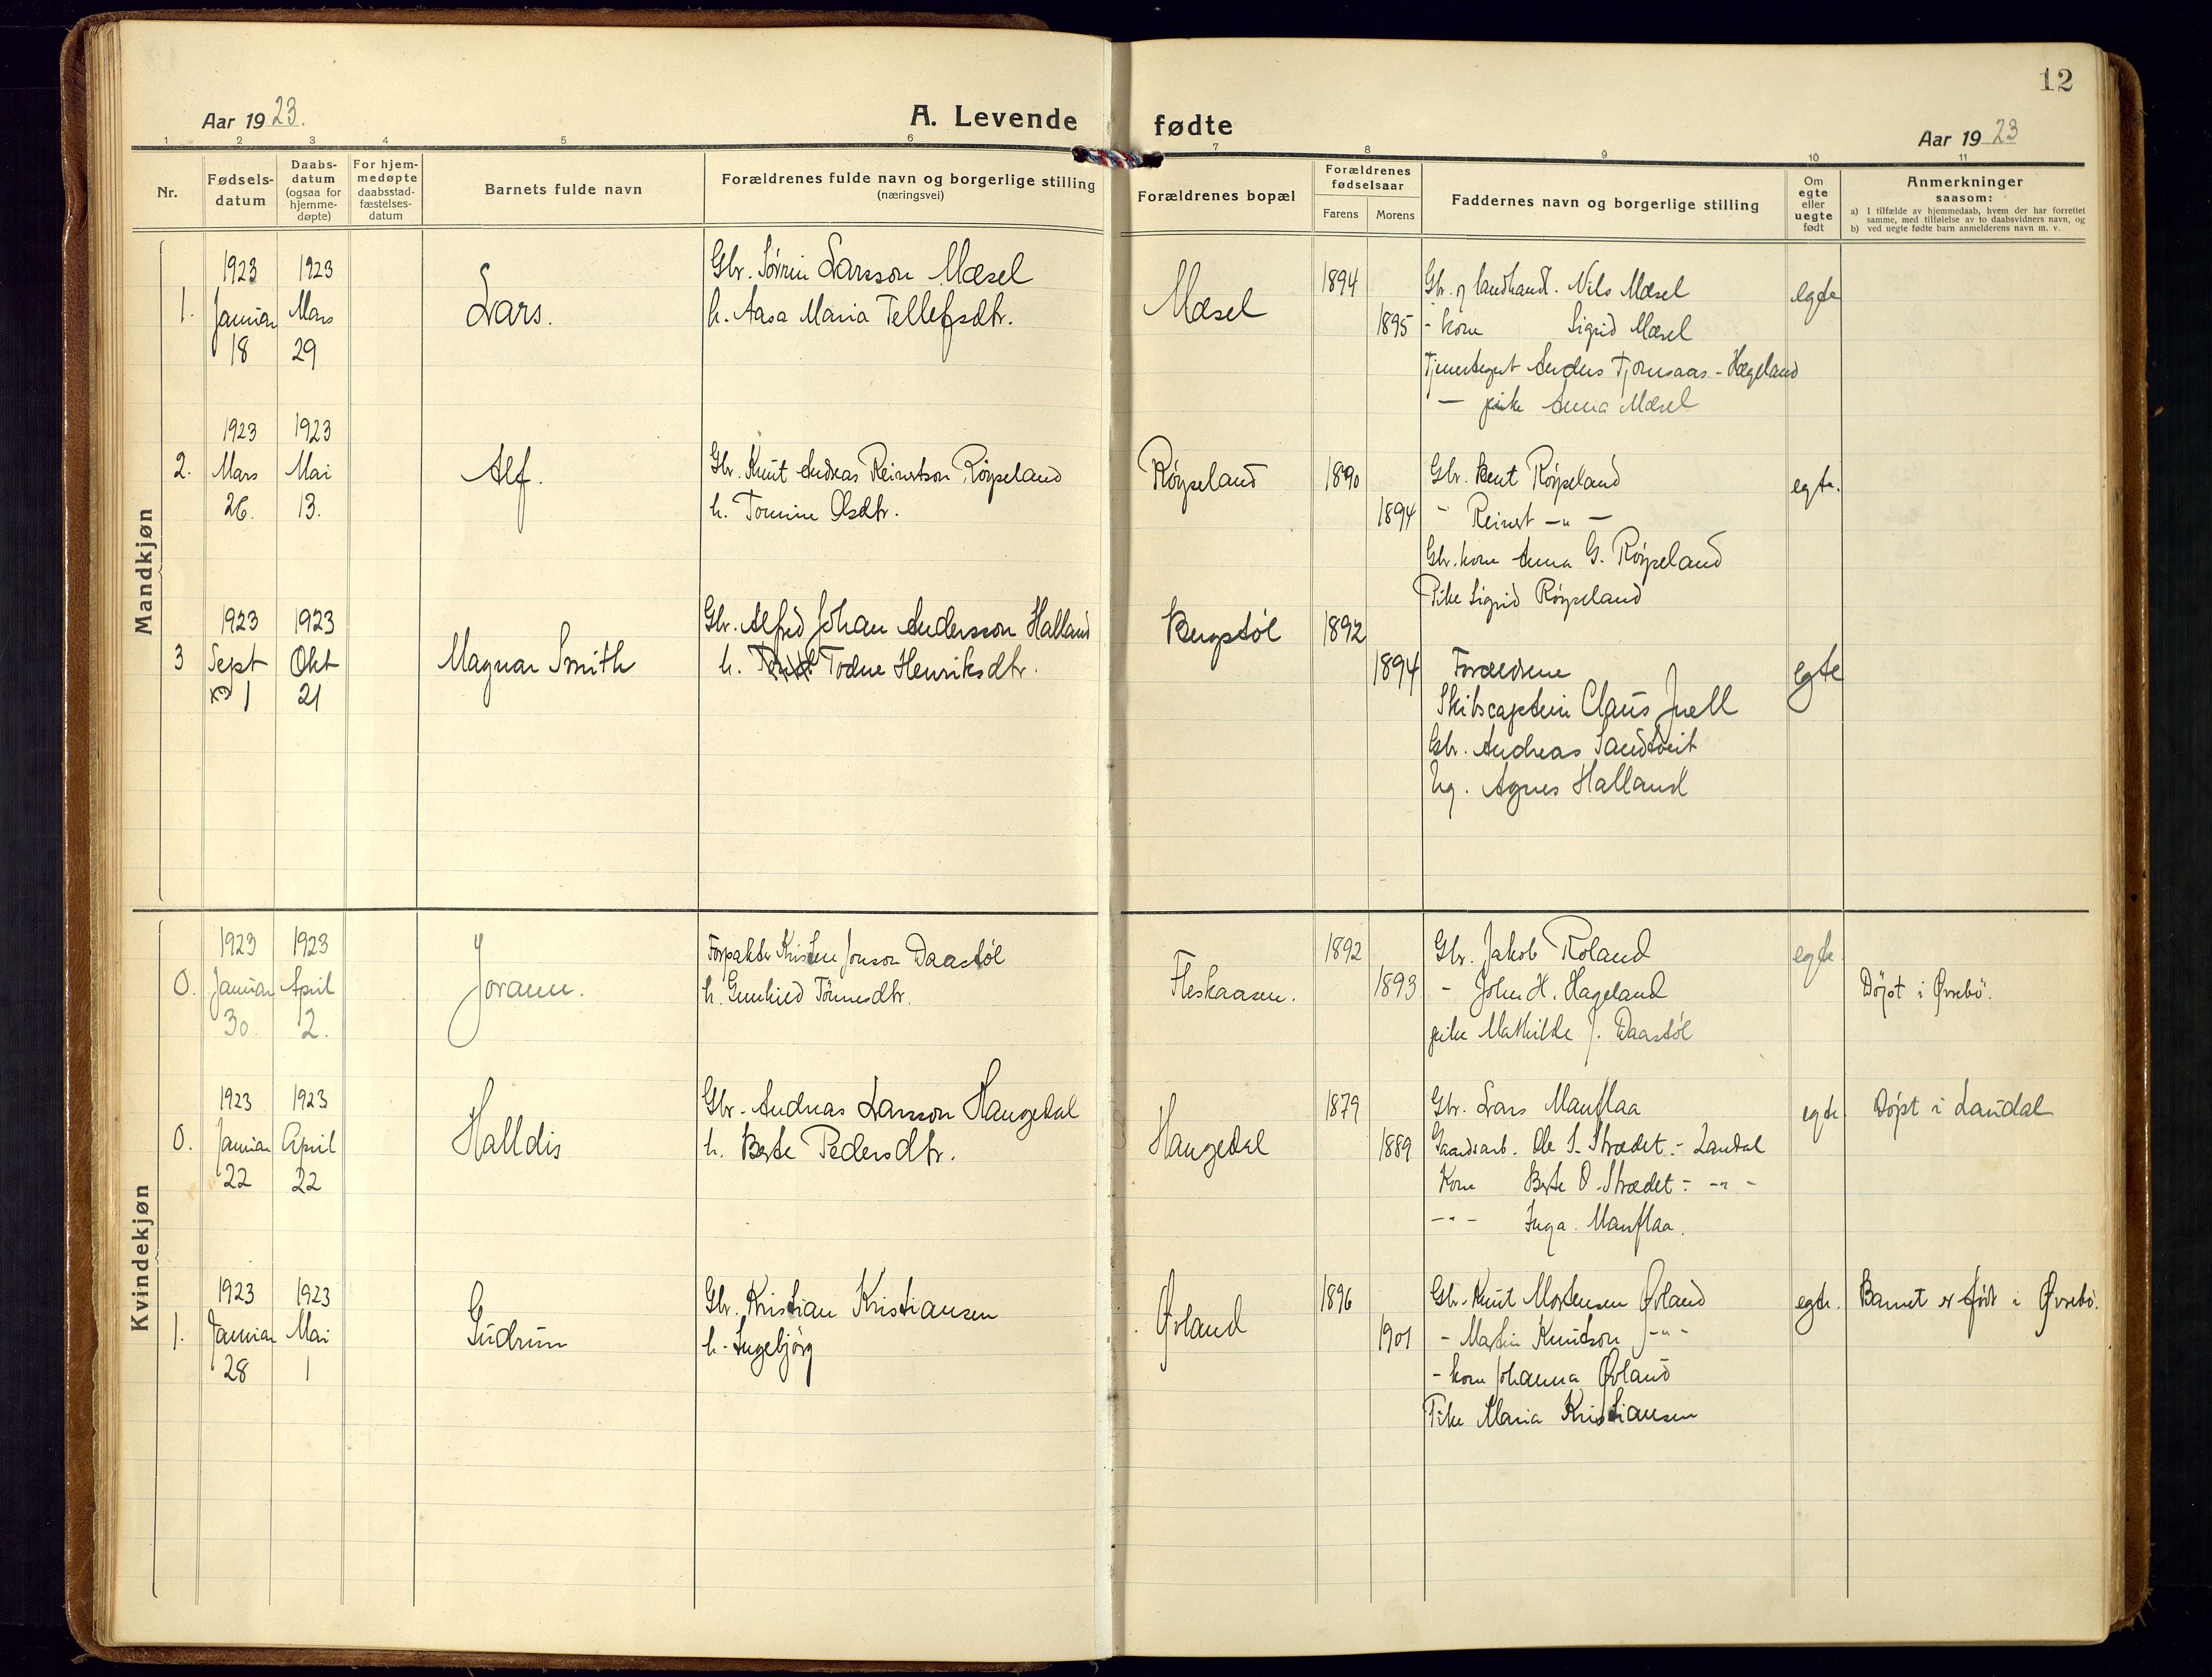 12
Aar 1923.
A. Levende fødte
Aar 1923
1 2 3 4 5 6 7 8 9 10 11
Nr.
Fødsels-
datum
Daabs-
datum
(ogsaa for
hjemme-
døpte)
For hjem-
medøpte
daabsstad-
fæstelses-
datum
Barnets fulde navn
Forældrenes fulde navn og borgerlige stilling
(næringsvei)
Forældrenes bopæl
Forældrenes
fødselsaar
Farens Morens
Faddernes navn og borgerlige stilling
Om
egte
eller
uegte
født
Anmerkninger
saasom:
a) I tilfælde av hjemmedaab, hvem der har forrettet
samme, med tilføielse av to daabsvidners navn, og
b) ved uegte fødte barn anmelderens navn m. v.
Mandkjøn
1923 1923 Gbr. Sørren Larsson Mæsel 1894 Gbr. og landhandl. Nils Mæsel
1. Januar Mars Lars. h. Aasa Maria Tellefsdtr. Mæsel 1895 - kone Sigrid Mæsel egte
18 29 Tjenestegut Anders Tjomsaas - Hægeland
— pike Anna Mæsel
1923 1923
2. Mars Mai Alf. Gbr. Knut Andreas Reinertson Røyseland Røyseland 1890 Gbr. Bent Røyseland egte.
26. 13. h. Tomine Olsdtr. 1894 - Reinert -"-
Gbr. kone Anna G. Røyseland
Pike Sigrid Røyseland
1923 1923 Gbr. Alfred Johan Andersson Halland Bergstøl 1892
3 Sept Okt Magnar Smith h. Todne Henriksdtr. 1894 Forældrene egte
1 21 Skibscaptein Claus Juell
Gbr. Andreas Sandtveit
Ug. Agnes Halland
Kvindekjøn
1923 1923 Forpakter Kristen Jonson Daastøl 1892 Gbr. Jakob Roland egte
0. Januar April Jorann. h. Gunhild Tønnesdtr. Fleskaasen. 1893 - John H. Hageland Døpt i Øvrebö.
30. 2. pike Mathilde J. Daastøl
1923 1923 Gbr. Andreas Larsson Haugedal 1879 Gbr. Lars Manflaa egte Døpt i Laudal
0. Januar April Halldis h. Berte Pedersdtr. Haugedal 1889 Gaardsarb. Ole S. Strædet - Laudal
22 22 Kone Berte O. Strædet - -"-
-"- Inga Manflaa.
1923 1923 Gbr. Kristian Kristiansen 1896 Gbr. Knut Mortensen Øvland egte. Barnet er født i Øvrebö.
1. Januar Mai Gudrun h. Ingebjørg Øvland 1901 - Martin Knutson -"-
28 1 - kone Johanna Øvland
Pike Maria Kristiansen